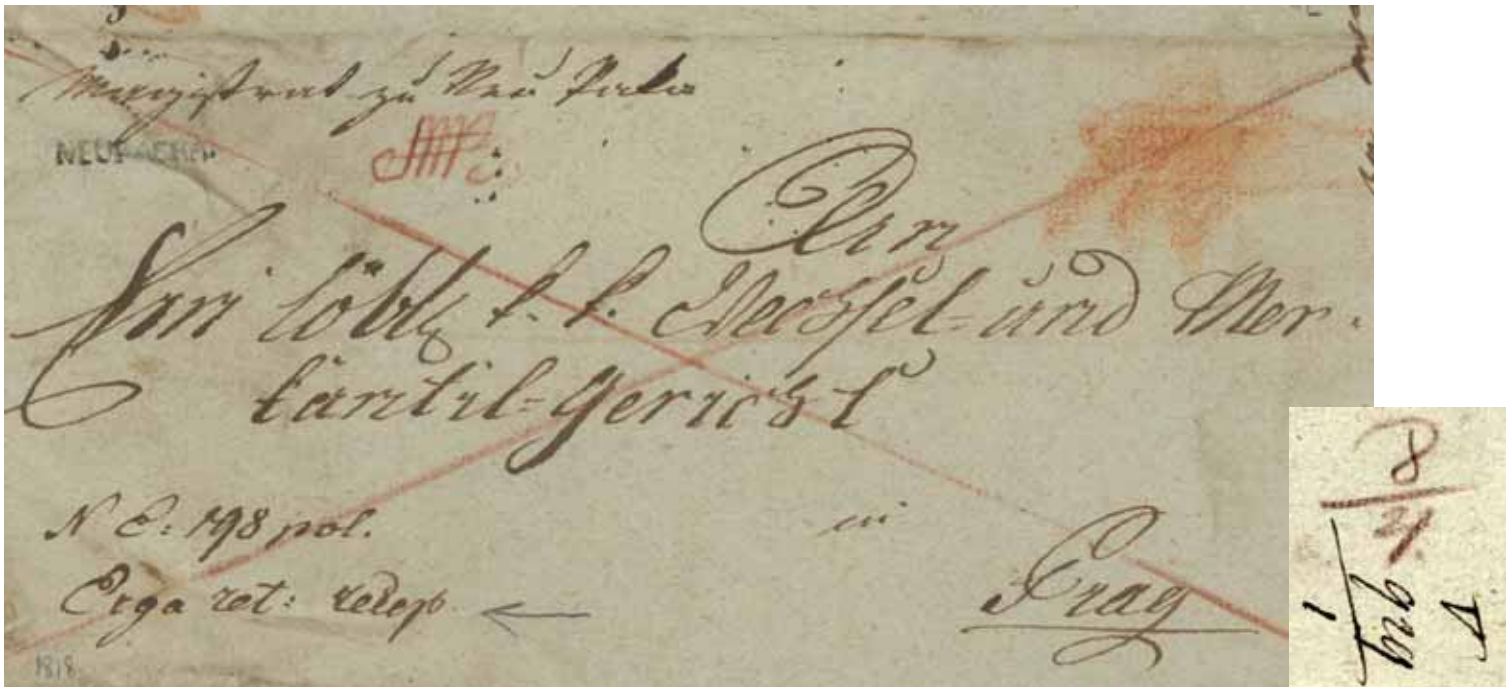 Magistrat zu Neu Paka
NEUPACKAU
Dem
Löbl k. k. Wechsel- und Mer-
kantil-Gericht
N E: 198 pol.
in
Erga ret: recep.
Prag
1818
8